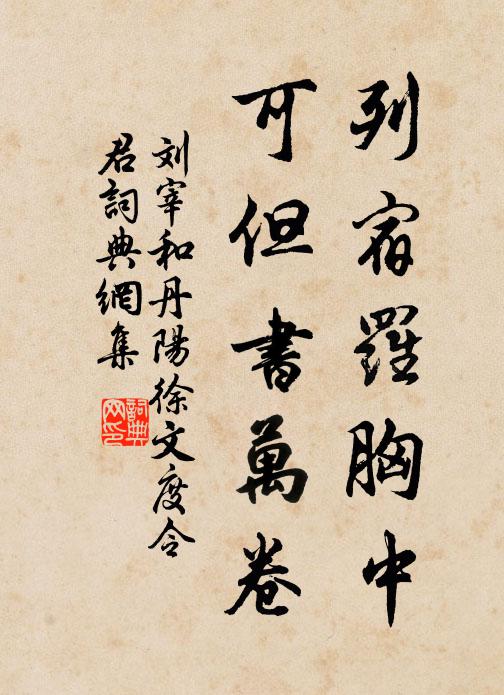 列宿羅胸中
可但書萬卷
刘宰和丹陽徐文度令
君詞典網集
詞典
网印